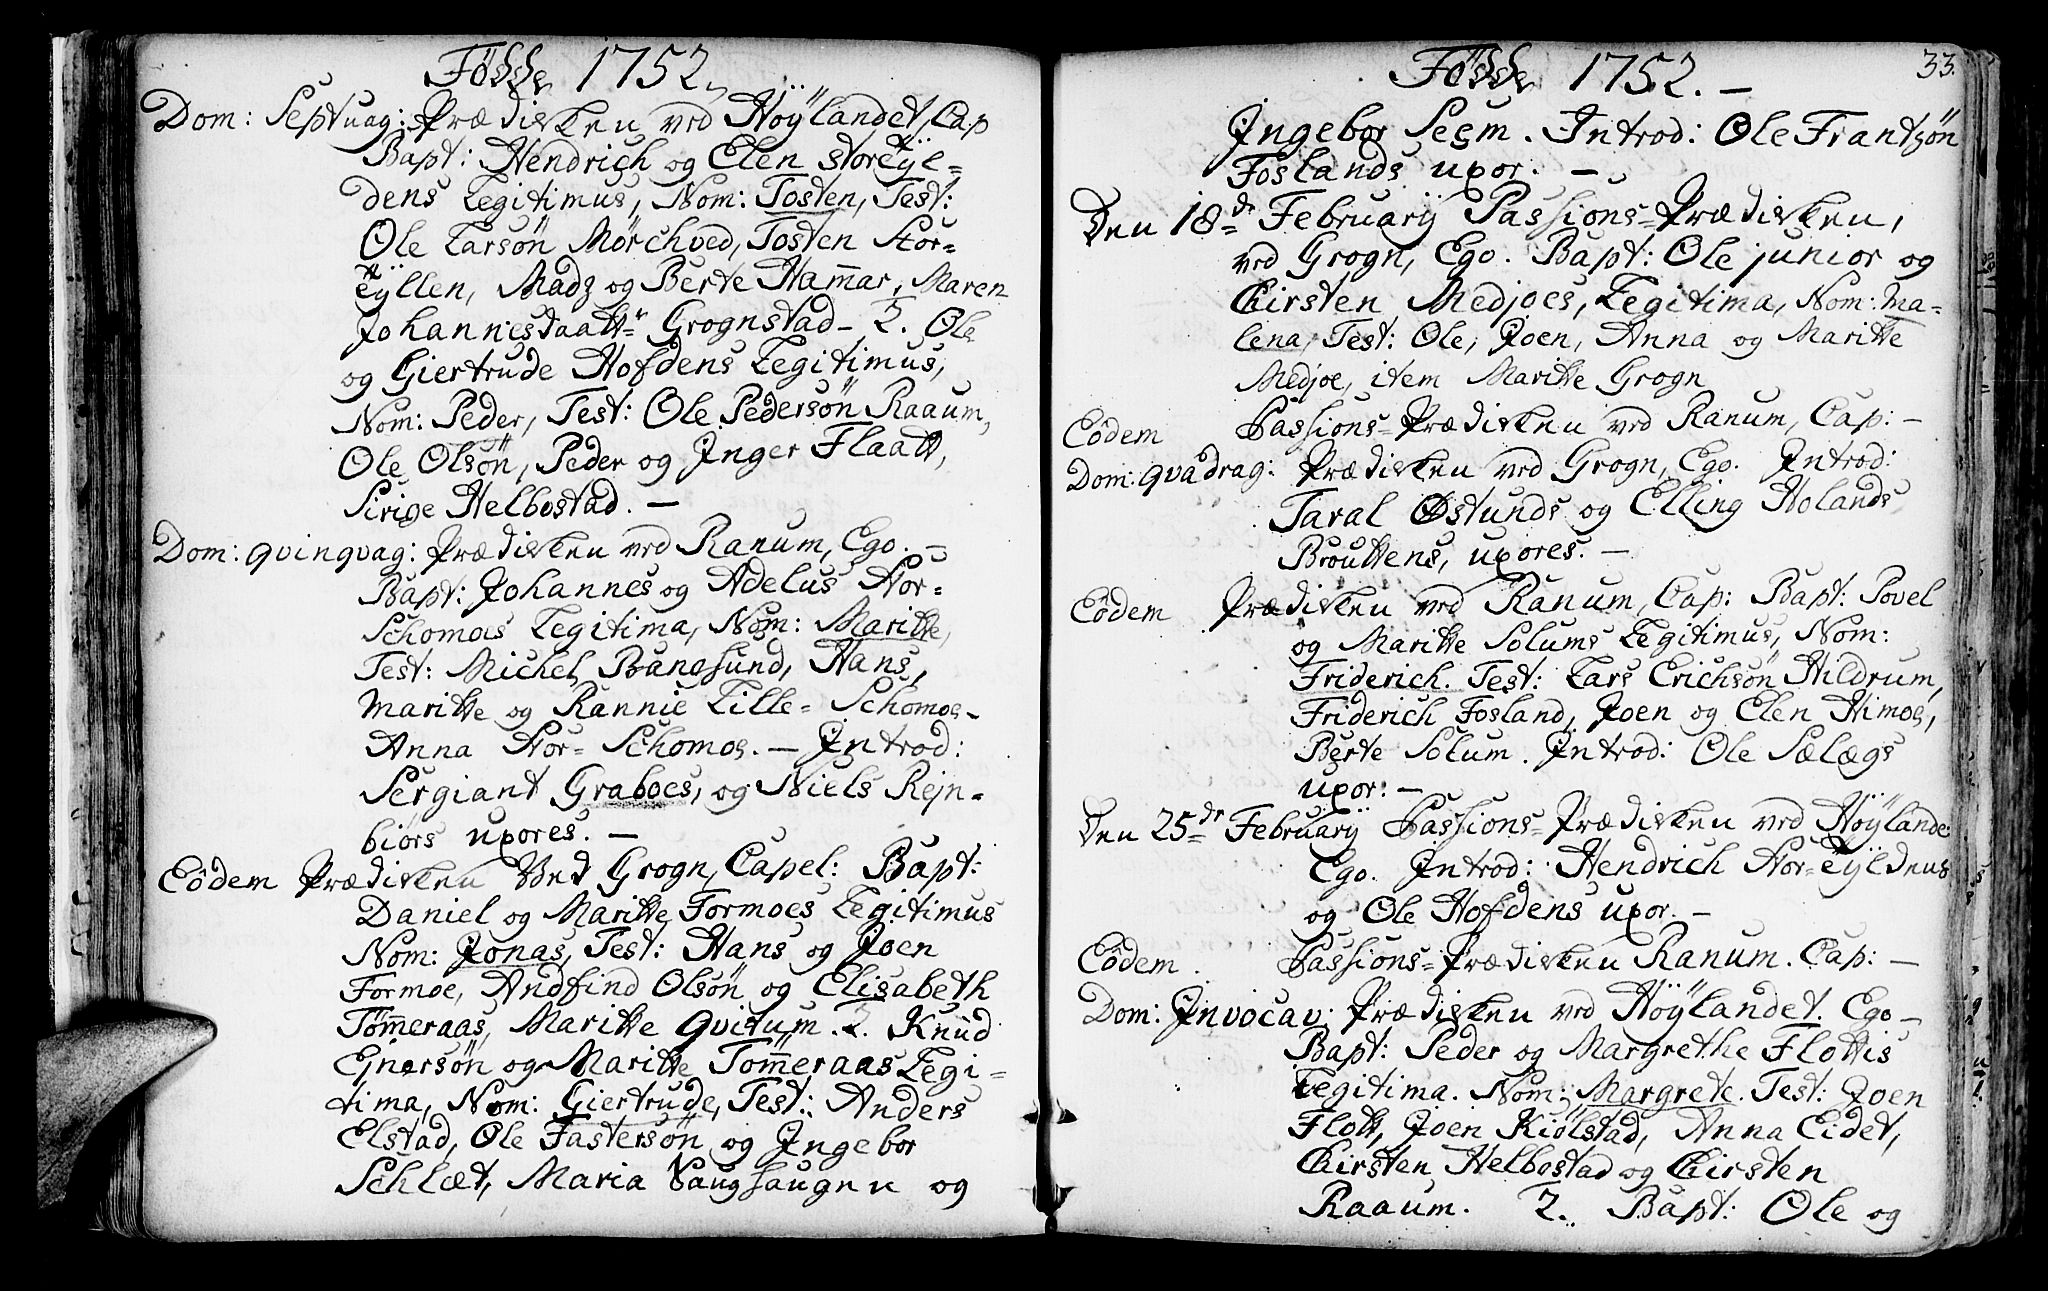 Födde 1752.
Dom: Septuag: Prædicken ved Höÿlandet, Cap
Bapt: Hendrich og Elen storeÿl=
dens Legitimus, Nom: Tosten, Test:
Ole Larsön Mörchved, Tosten Stor=
eÿllen, Madz og Berte Hammar, Maren
Johannesdaattr Grognstad_ 2. Ole
og Giertrude Hofdens Legitimus,
Nom: Peder, Test: Ole Pedersön Raaum,
Ole Olsön, Peder og Inger Flaatt,
Sirige Helbostad. —
Dom: qvinqvag: Prædicken ved Ranum, Ego. —
Bapt: Johannes og Adelus Nor=
Schomoes Legitima, Nom: Maritte,
Test: Michel Bangsund, Hans,
Maritte og Rannie Lille= Schomoe,
Anna Nor= Schomoe. — Introd:
Sergiant Graboes, og Niels Rejn=
biörs uxores. —
Eödem Prædicken Ved Grogn, Capel: Bapt:
Daniel og Maritte Formoes Legitimus
Nom: Jonas, Test: Hans og Joen
Formoe, Andfind Olsön og Elisabeth
Tömmeraas, Maritte Qvitum. 2. Knud
Ejnersön og Maritte Tömmeraas Legi=
tima, Nom: Giertrude, Test: Anders
Elstad, Ole Fastersön og Ingebor
Schlæt, Maria Haugshaugen og
33.
Födde 1752. —
Ingebor Seem. Introd: Ole Frantzön
Foslands uxor. —
Den 18de Februarij Passions=Prædicken,
ved Grogn, Ego. Bapt: Ole junior og
Chirsten Medjoes, Legitima, Nom: Ma=
lena, Test: Ole, Joen, Anna og Maritte
Medjoe, item Maritte Grogn
Eödem Passions=Prædicken ved Ranum, Cap: —
Dom: qvadrag: Prædicken ved Grogn, Ego. Introd:
Taral Östunds og Elling Holands
Brouttens, uxores. —
Eödem Prædicken ved Ranum, Cap: Bapt: Povel
og Maritte Solums Legitimus, Nom:
Friderich. Test: Lars Erichsön Hildrum,
Friderich Fosland, Joen og Elen Himoe,
Berte Solum. Introd: Ole Sælægs
uxor. —
Den 25de Februarÿ Passions=Prædicken ved Höÿlande:
Ego. Introd: Hendrich Nor=eÿldens
og Ole Hofdens uxor. —
Eödem. Passions=Prædicken Ranum. Cap: —
Dom: Invocav: Prædicken ved Höÿlandet. Ego —
Bapt: Peder og Margrethe Flottis
Legitima. Nom: Margrete. Test: Joen
Flott, Joen Kiölstad, Anna Eidet,
Chirsten Helbostad og Chirsten
Raaum. 2. Bapt: Ole og